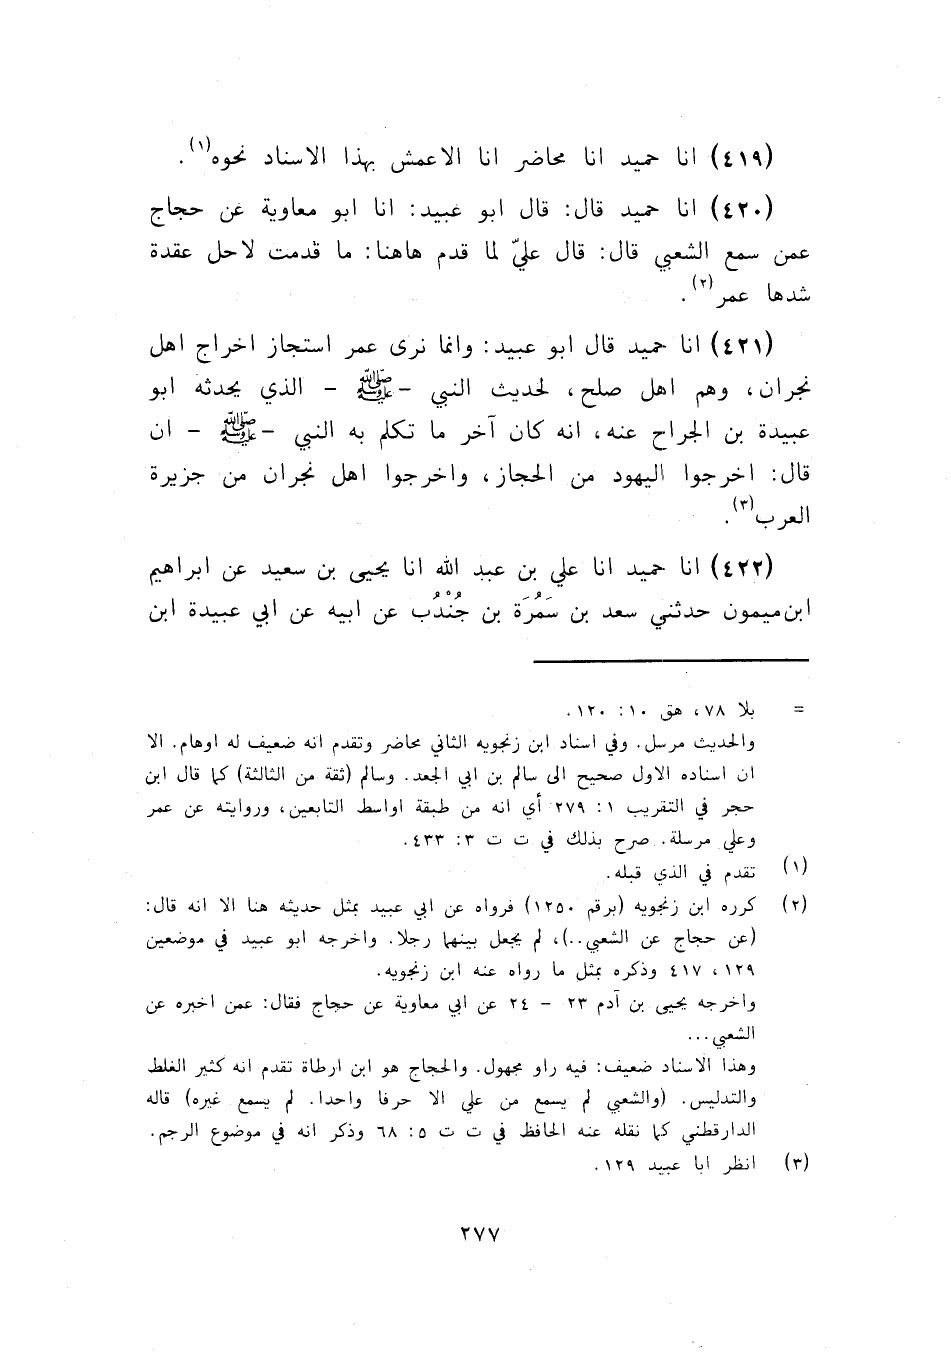 (٤١٩) انا حميد انا محاضر انا الاعمش بهذا الاسناد نحوه(١).
(٤٢٠) انا حميد قال: قال ابو عبيد: انا ابو معاوية عن حجاج
عمن سمع الشعبي قال: قال عليّ لما قدم هاهنا: ما قدمت لاحل عقدة
شدها عمر(٢).
(٤٢١) انا حميد قال ابو عبيد: وانما نرى عمر استجاز اخراج اهل
نجران، وهم اهل صلح، لحديث النبي -ﷺ - الذي يحدثه ابو
عبيدة بن الجراح عنه، انه كان آخر ما تكلم به النبي -ﷺ - ان
قال: اخرجوا اليهود من الحجاز، واخرجوا اهل نجران من جزيرة
العرب(٣).
(٤٢٢) انا حميد انا علي بن عبد الله انا يحيى بن سعيد عن ابراهيم
ابن ميمون حدثني سعد بن سَمُرَة بن جُنْدُب عن ابيه عن ابي عبيدة ابن
= بلا ٧٨، هق ١٠: ١٢٠.
والحديث مرسل. وفي اسناد ابن زنجويه الثاني محاضر وتقدم انه ضعيف له اوهام. الا
ان اسناده الاول صحيح الى سالم بن ابي الجعد. وسالم (ثقة من الثالثة) كما قال ابن
حجر في التقريب ١: ٢٧٩ أي انه من طبقة اواسط التابعين، وروايته عن عمر
وعلي مرسلة. صرح بذلك في ت ت ٣: ٤٣٣.
(١) تقدم في الذي قبله.
(٢) كرره ابن زنجويه (برقم ١٢٥٠) فرواه عن ابي عبيد بمثل حديثه هنا الا انه قال:
(عن حجاج عن الشعبي..)، لم يجعل بينهما رجلا. واخرجه ابو عبيد في موضعين
١٢٩، ٤١٧ وذكره بمثل ما رواه عنه ابن زنجويه.
واخرجه يحيى بن آدم ٢٣ - ٢٤ عن ابي معاوية عن حجاج فقال: عمن اخبره عن
الشعبي...
وهذا الاسناد ضعيف: فيه راو مجهول. والحجاج هو ابن ارطاة تقدم انه كثير الغلط
والتدليس. (والشعبي لم يسمع من علي الا حرفا واحدا. لم يسمع غيره) قاله
الدارقطني كما نقله عنه الحافظ في ت ت ٥: ٦٨ وذكر انه في موضوع الرجم.
(٣) انظر ابا عبيد ١٢٩.
٢٧٧